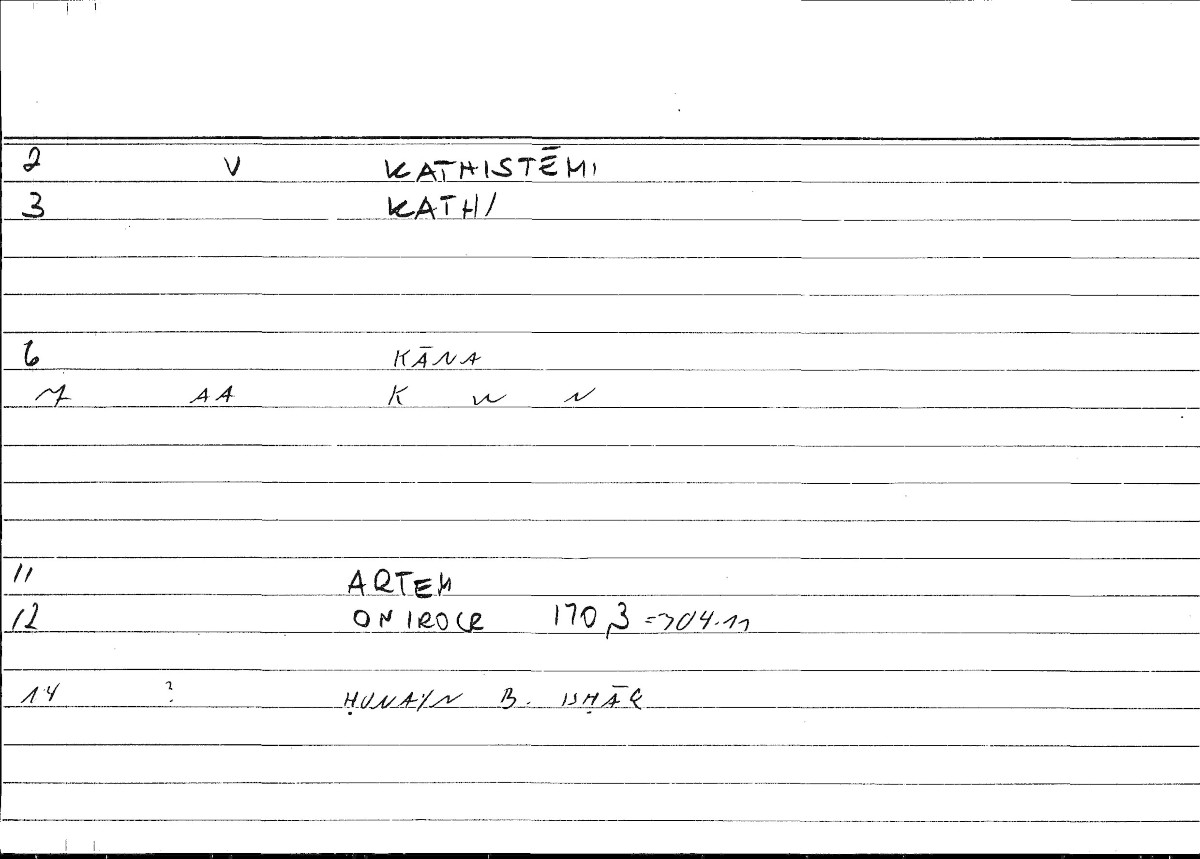 2 V KATHISTĒMI
3 KATHI
6 KĀNA
7 AA K W N
11 ARTEM
12 ONIROCR 170,3 = 304.11
14 ? ḤUNAYN B. ISḤĀQ